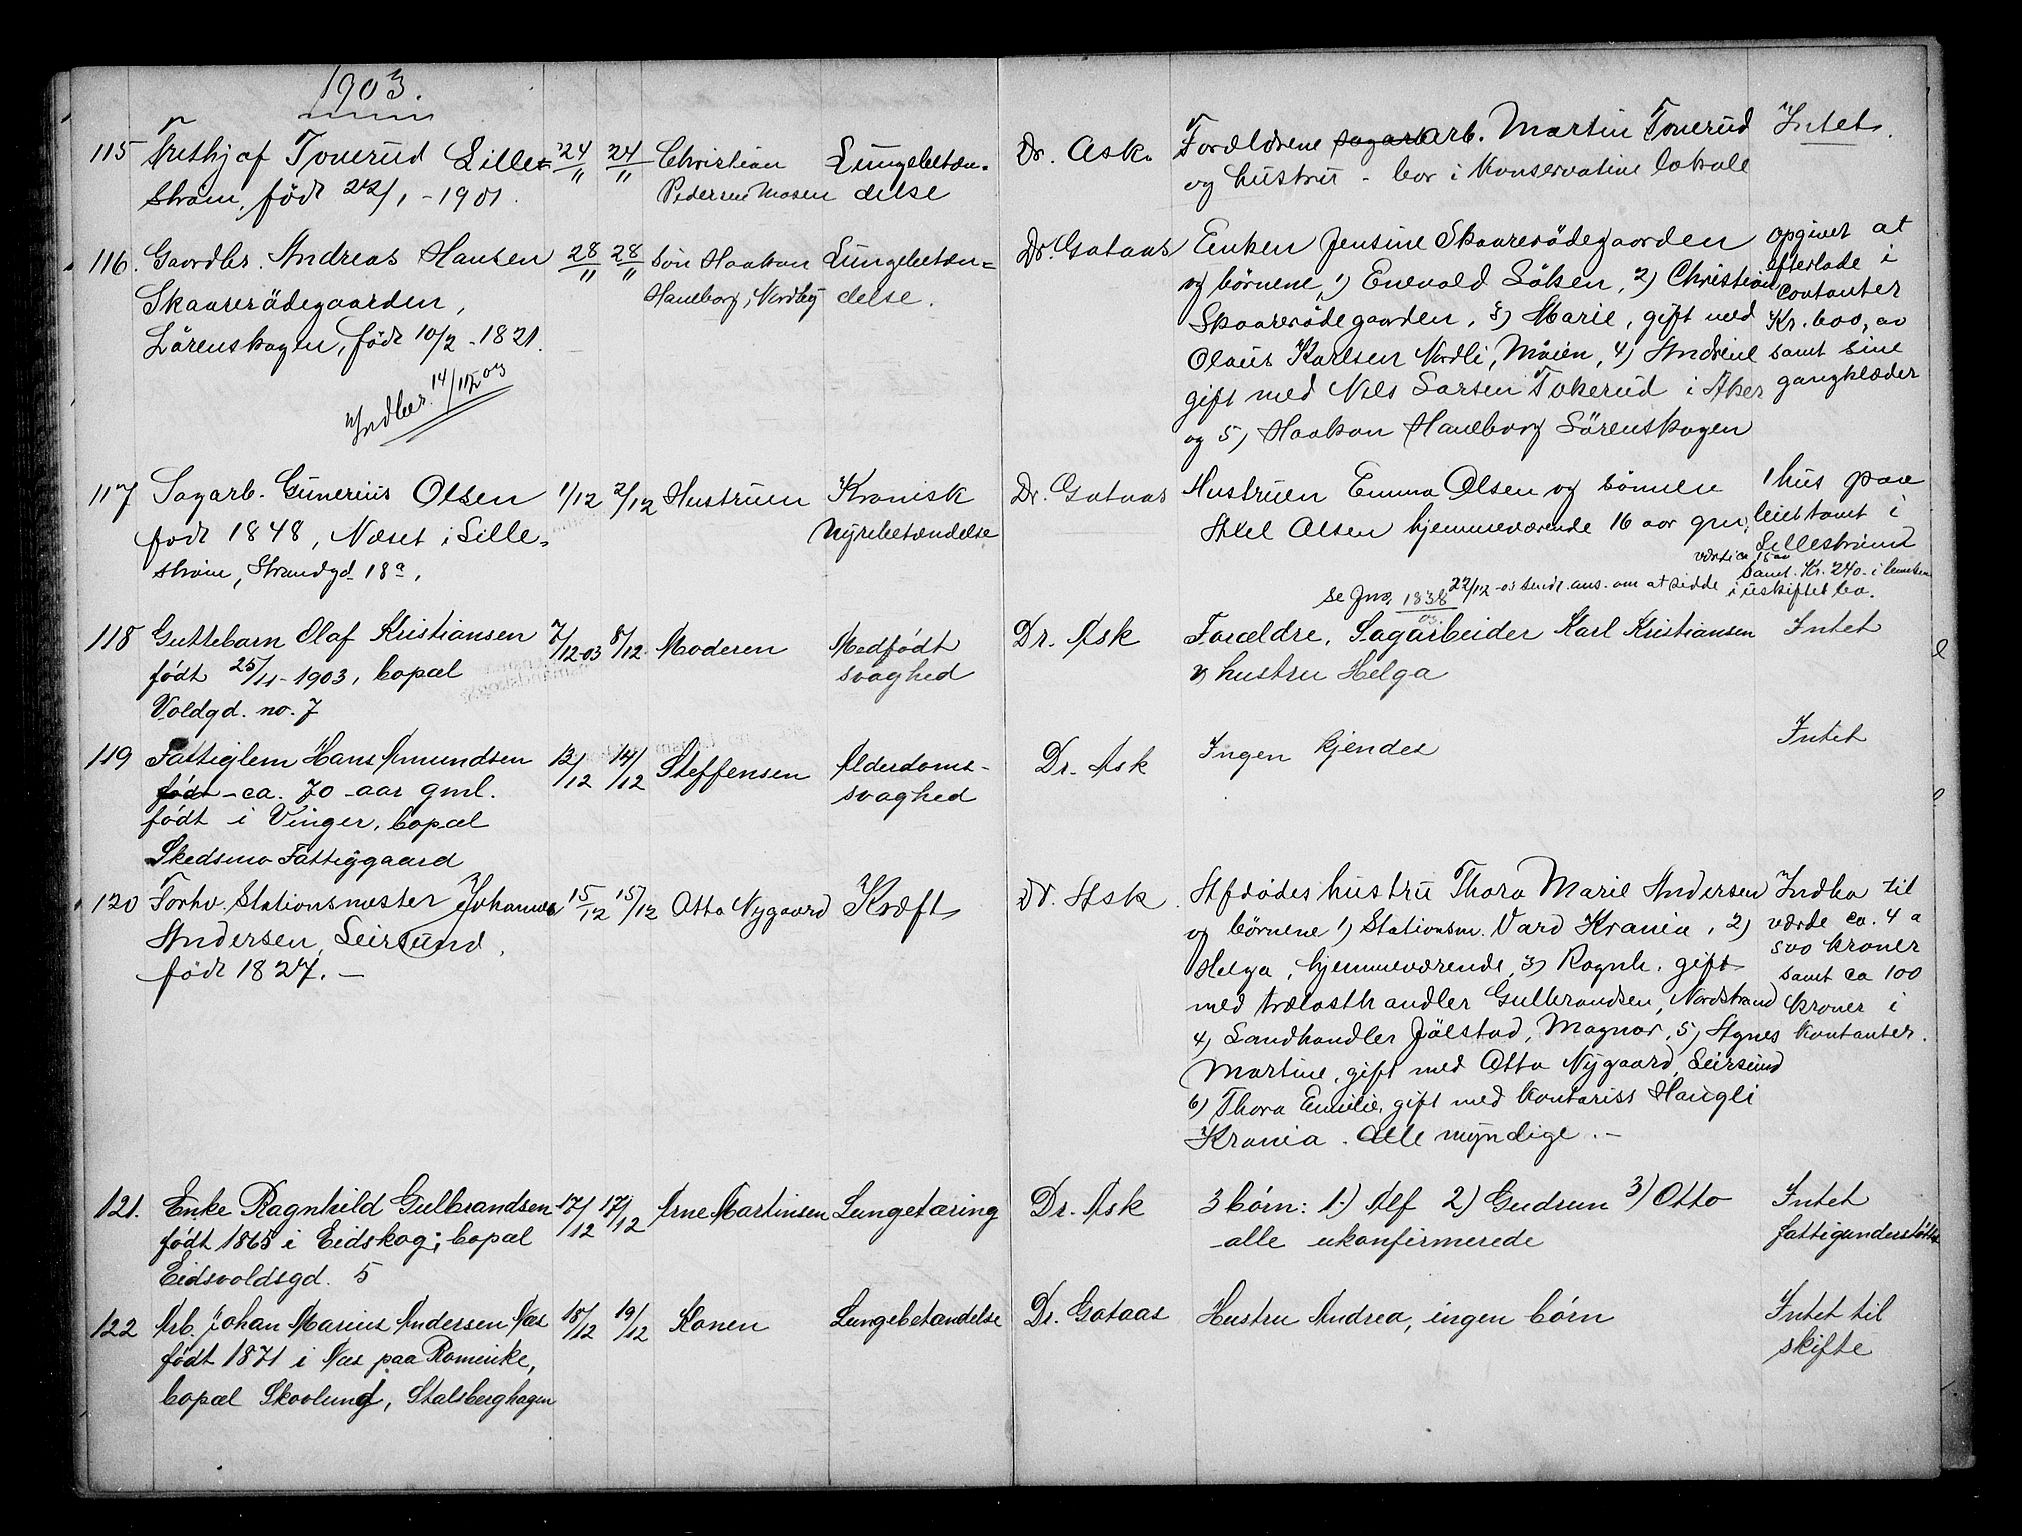 1903.
115 Frithjof Tonerud Lille=
strøm, født 22/1 - 1901.
24/11 24/11 Christian
Pedersen Mosen
Lungebetæn-
delse
Dr. Ask.
Forældrene arb. Martin Tonerud
og hustru - bor i Konservative lokale
Intet.
116. Gaardbr. Andreas Hansen
Skaarerødegaarden,
Lørenskogen, født 10/2 - 1821.
Indber. 14/12 03
28/11 28/11 Søn Haakon
Haneborg, Nordby
Lungebetæn=
delse.
Dr. Gotaas
Enken Jensine Skaarerødegaarden
og børnene, 1) Enevold Løken, 2) Christian
Skaarerødegaarden, 3) Marie, gift med
Olaus Karlsen Nordli, Moien, 4) Andrine
gift med Nils Larsen Tokerud i Aker
og 5) Haakon Haneborg Lørenskogen
Opgives at
efterlade i
contanter
Kr. 600,00
samt sine
gangklæder
117 Sagarb. Gunerius Olsen
født 1848, Næset i Lille-
strøm, Strandgd. 18a.
1/12 2/12 Hustruen
Kronisk
Nyrebetændelse
Dr. Gotaas
Hustruen Emma Olsen og sønnen
Axel Olsen hjemmeværende 16 aar gml.
1 hus paa
leiet tomt i
Lillestrøm
samt Kr. 240 i
se Jno. 1838/03 22/12-03 sendt ans. om at sidde i uskiftet bo.
118 Guttebarn Olaf Kristiansen
født 25/11 - 1903, bopæl
Voldgd. no. 7
7/12-03 8/12 Moderen
Medfødt
svaghed
Dr. Ask
Forældre, Sagarbeider Karl Kristiansen
og hustru Helga
Intet
119 Fattiglem Hans Amundsen
født - ca. 70 aar gml.
født i Vinger, bopæl
Skedsmo Fattiggaard
12/12 14/12 Steffensen
Alderdoms-
svaghed
Dr. Ask
Ingen kjendes
Intet
120 Forhv. Stationsmester Johannes
Andersen, Leirsund,
født 1827. -
15/12 15/12 Otto Nygaard
Kræft
Dr. Ask.
Afdødes hustru Thora Marie Andersen
og børnene 1) Stationsm. Vard Krania, 2)
Helga, hjemmeværende, 3) Ragnh. gift
med trælasthandler Gulbrandsen, Nordstrand
4) Landhandler Jølstad, Magnor, 5) Agnes
Martine, gift med Otto Nygaard, Leirsund
6) Thora Emilie, gift med Kontorist Haugli
Krania. Alle myndige. -
Indbo til
værde ca. 4 a
500 kroner
samt ca 100
kroner i
Kontanter.
121. Enke Ragnhild Gulbrandsen
født 1865 i Eidskog; bopæl
Eidsvoldsgd. 5
17/12 17/12 Arne Martinsen
Lungetæring
Dr. Ask
3 børn: 1) Alf 2) Gudrun 3) Otto
- alle ukonfirmerede
Intet
fattigunderstøttet
122 Arb. Johan Marius Andersen Næs
født 1871 i Næs paa Romerike,
bopæl Skoolund, Stalsberghagen
18/12 19/12 Konen
Lungebetændelse
Dr. Gotaas
Hustru Andrea, ingen børn
Intet til
skifte